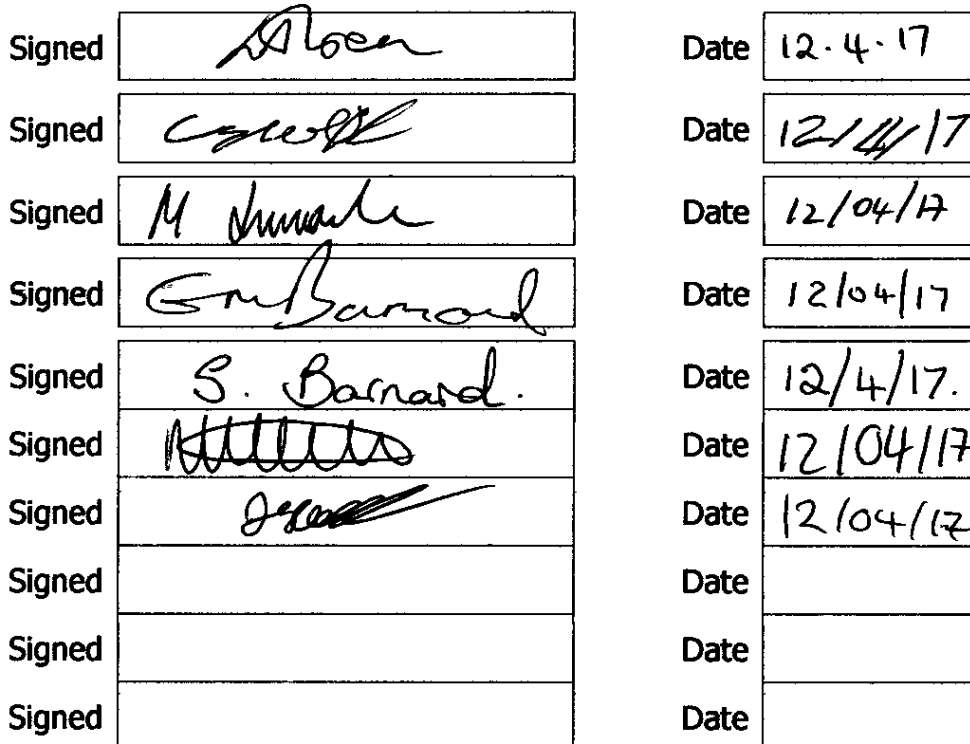 Signed Date 12.4.17
Signed Date 12/4/17
Signed M Date 12/04/17
Signed Barnard Date 12/04/17
Signed S. Barnard. Date 12/4/17.
Signed Date 12/04/17
Signed Date 12/04/17
Signed Date
Signed Date
Signed Date